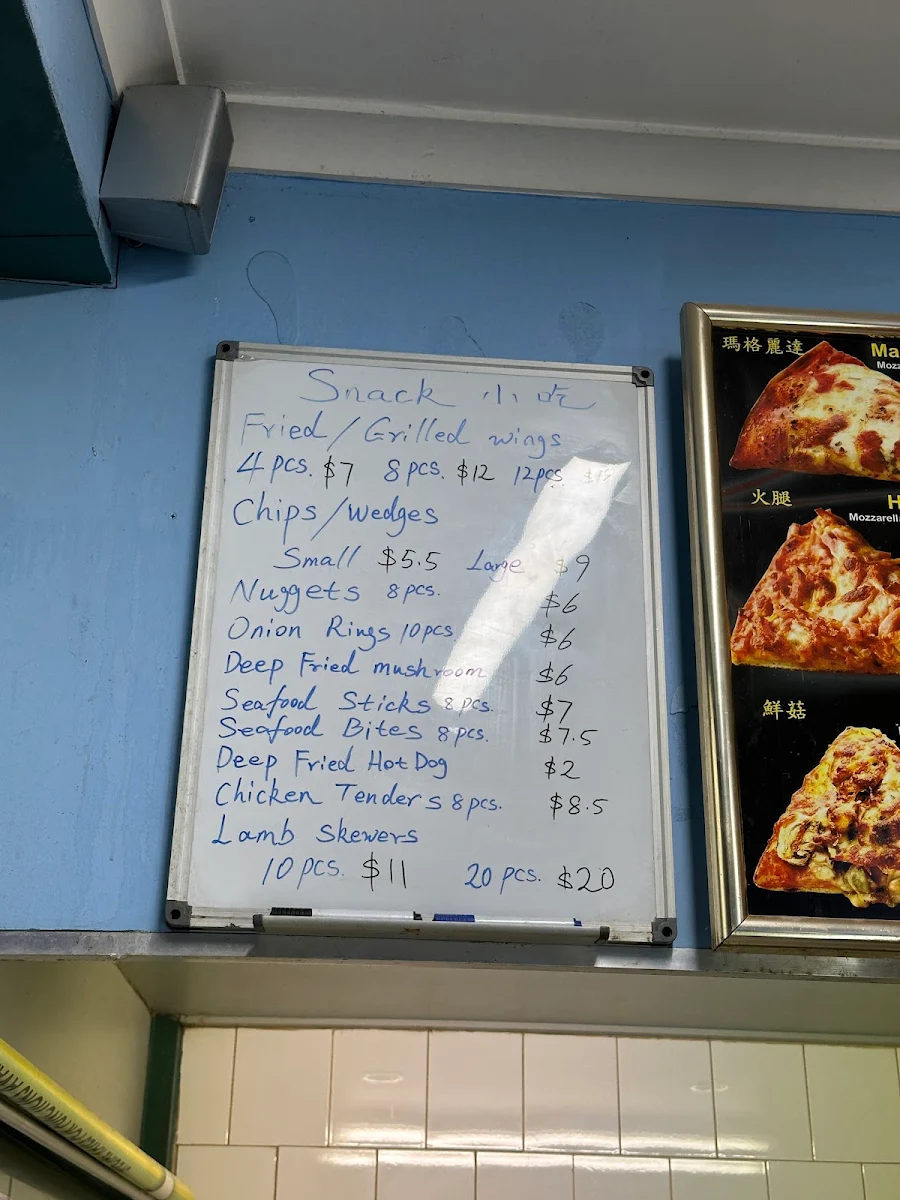 Snack 小吃
Fried/Grilled wings
4 pcs. $7 8 pcs. $12 12pcs.
Chips/wedges
Small $5.5 Large $9
Nuggets 8 pcs. $6
Onion Rings 10 pcs $6
Deep Fried mushroom $6
Seafood Sticks 8 pcs. $7
Seafood Bites 8 pcs. $7.5
Deep Fried Hot Dog $2
Chicken Tenders 8 pcs. $8.5
Lamb Skewers
10 pcs. $11 20 pcs. $20
瑪格麗達 Ma
Mozz
火腿 H
Mozzarella
鮮菇